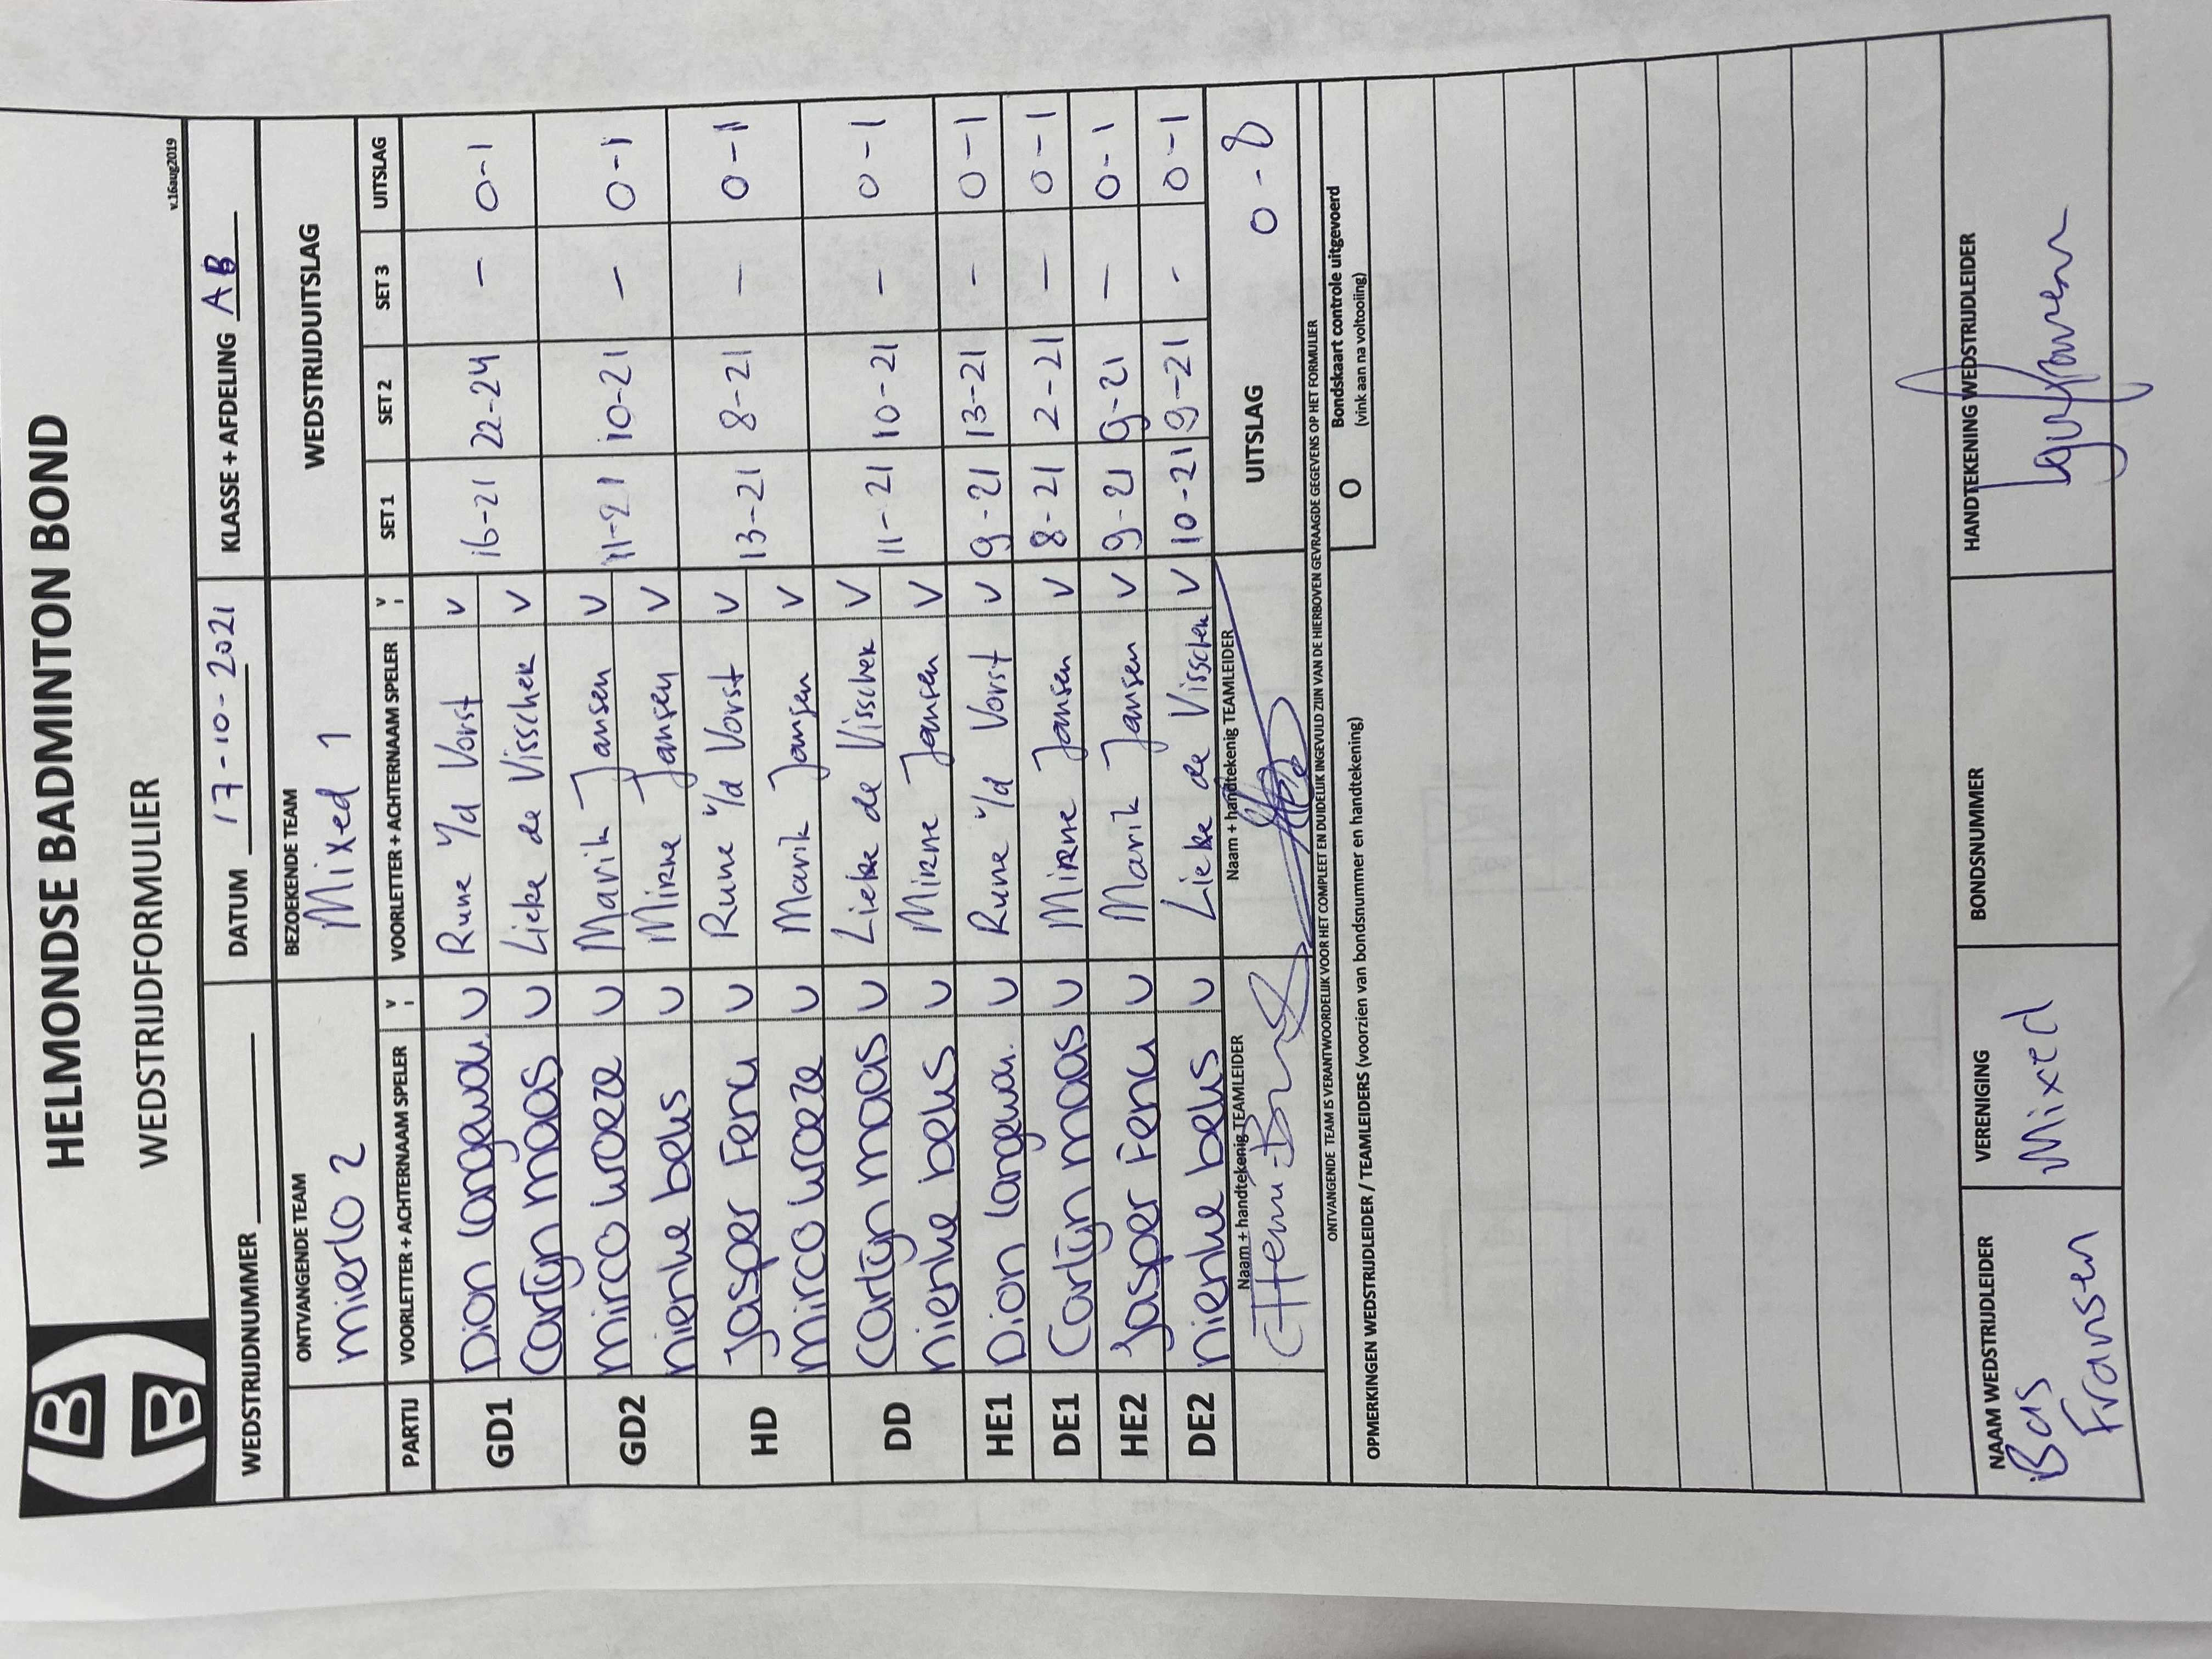 B
B
HELMONDSE BADMINTON BOND
WEDSTRIJDFORMULIER
v.16aug2019
WEDSTRIJDNUMMER DATUM 17-10-2021 KLASSE + AFDELING AB
ONTVANGENDE TEAM BEZOEKENDE TEAM WEDSTRIJDUITSLAG
mierlo 2 Mixed 1
PARTIJ VOORLETTER + ACHTERNAAM SPELER V VOORLETTER + ACHTERNAAM SPELER V SET 1 SET 2 SET 3 UITSLAG
GD1 Dion V Rune v/d Vorst V 16-21 22-24 – 0-1
Cartijn maas V Lieke de Visscher V
GD2 mirco V Marik Jansen V 11-21 10-21 – 0-1
nienke V Mirne Jansen V
HD Jasper V Rune v/d Vorst V 13-21 8-21 – 0-1
mirco V Marik Jansen V
DD Cartijn maas V Lieke de Visscher V 11-21 10-21 – 0-1
nienke V Mirne Jansen V
HE1 Dion V Rune v/d Vorst V 9-21 13-21 – 0-1
DE1 Cartijn maas V Mirne Jansen V 8-21 2-21 – 0-1
HE2 Jasper V Marik Jansen V 9-21 9-21 – 0-1
DE2 nienke V Lieke de Visscher V 10-21 9-21 - 0-1
Naam + handtekenig TEAMLEIDER Naam + handtekenig TEAMLEIDER UITSLAG 0-8
ONTVANGENDE TEAM IS VERANTWOORDELIJK VOOR HET COMPLEET EN DUIDELIJK INGEVULD ZIJN VAN DE HIERBOVEN GEVRAAGDE GEGEVENS OP HET FORMULIER
OPMERKINGEN WEDSTRIJDLEIDER / TEAMLEIDERS (voorzien van bondsnummer en handtekening)
O Bondskaart controle uitgevoerd
(vink aan na voltooiing)
NAAM WEDSTRIJDLEIDER VERENIGING BONDSNUMMER HANDTEKENING WEDSTRIJDLEIDER
Bas Mixed
Fransen